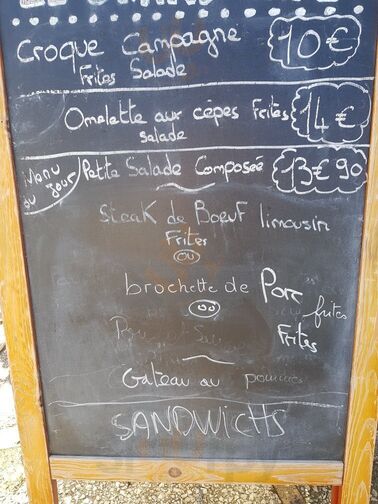 Croque Campagne 10€
Frites Salade
Omelette aux cèpes Frites 14€
salade
Menu du jour Petite Salade Composée 13€90
Steak de Boeuf limousin
Frites
ou
brochette de Porc
ou
frites
Frites
Gateau au pommes
SANDWICHS